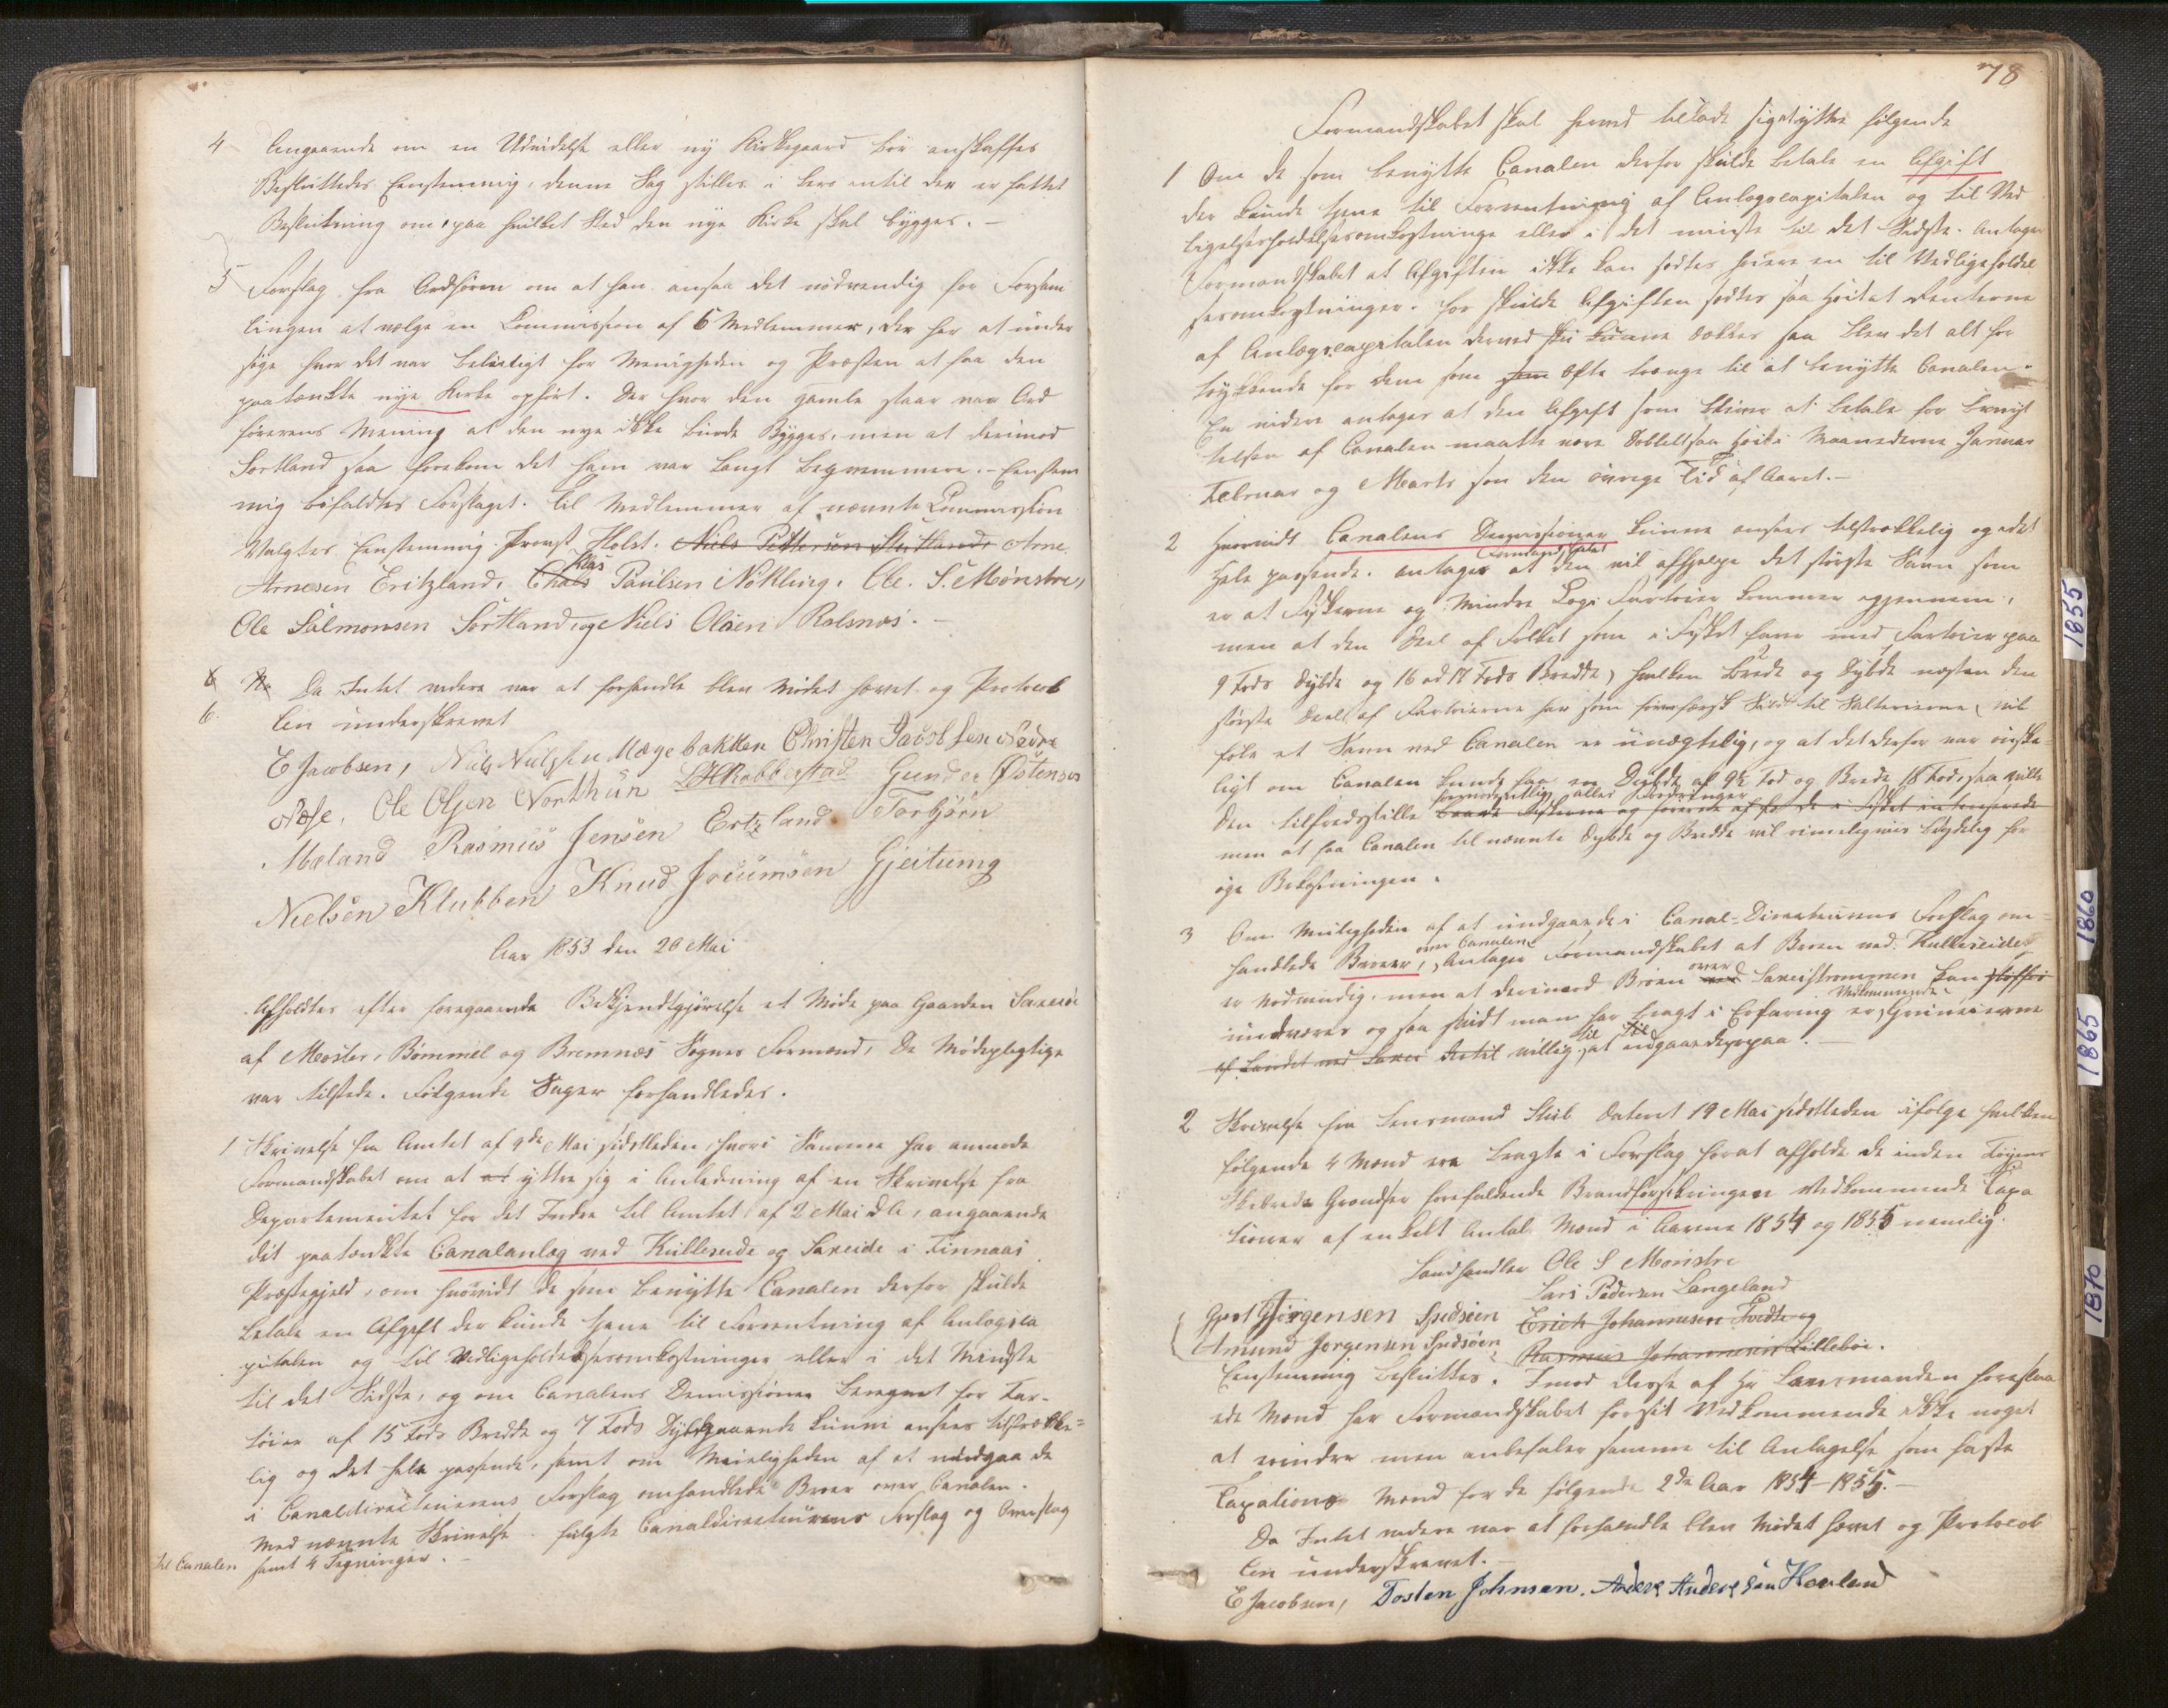 4 Angaaende om en Udvidelse eller ny Kirkegaard bör anskaffes
Besluttedes Eenstemmig, denne Sag stilles i bero intil der er fattet
Beslutning om, paa hvilket Sted den nye Kirke skal bygges. –
5 Forslag fra Ordföreren om at han ansaa det nödvendig for Forsam
lingen at vælge en Commission af 6 Medlemmer, der har at under
söge hvor det var beleiligt for Menigheden og Præsten at faa den
paatænkte nye Kirke opfört. Der hvor den gamle staar var Ord
förerens Mening at den nye ikke burde Bygges, men at derimod
Sortland saa forekom det ham var langt beqvemmere. – Eenstem
mig bifaldtes Forslaget. Til Medlemmer af nævnte Commission
Valgtes Eenstemmig Provst Holst. Niels Pettersen Stutland Arne
Arnesen Eritzland, Chals Klas Paulsen Nökling. Ole S. Mønstre,
Ole Salmonsen Sortland, og Niels Olsen Rolsnæs. –
6 Da Intet videre var at forhandle blev Mödet hævet og Protocol
len underskrevet
E Jacobsen, Niels Nielssen Mægebakken Christen Jacobsen Nedre
Næse, Ole Olsen Northun LHRabbestad Gunder Østensen
Mæland Rasmus Jensen Ertzland Torbjörn
Nielsen Klubben Knud Joeumsen Gjeitung
Aar 1853 den 20 Mai
Afholdtes efter foregaaende Bekjendtgjörelse et Möde paa Gaarden Saxeiöe
af Moster, Bömmel og Bremnæs Sognes Formænd, De Mödepligtige
var tilstede. Fölgende Sager forhandledes.
1 Skrivelse fra Amtet af 9de Mai sidstleden, hvori Samme har anmode
Formandskabet om at yttre sig i Anledning af en Skrivelse fra
Departementet for det Indre til Amtet af 2 Mai d A, angaaende
det paatænkte Canalanlæg ved Kulleseide og Saxeide i Finnaas
Præstegjeld, om hvorvidt de som benytte Canalen derfor skulde
betale en Afgift der kunde tjene til Forrentning af Anlægsca
pitalen og til Vedligeholdelsesomkostninger eller i det Mindste
til det Sidste, og om Canalens Demissioner beregnet for Far-
töier af 15 Fods Bredde og 7 Fods Dybgaaende kunne ansees tilstrække=
lig og det hele passende, samt om Muligheden af at undgaa de
i Canaldirecteurens Forslag omhandlede Broer over Canalen.
Med nævnte Skrivelse fulgte Canaldirecteurens Forslag og Overslag
til Canalen samt 4 Tegninger. –
78
Formandskabet skal herved tillade sig at yttre fölgende
1 Om de som benytte Canalen derfor skulde betale en Afgift
der kunde tjene til Forrentning af Anlægscapitalen og til Ved
ligeholdelsesomkostninge eller i det mindste til det Sidste. Antager
Formandskabet at Afgiften ikke kan sættes höiere en til Vedligeholdel
sesomkostninger. for skulde Afgiften sættes saa Höit at Renterne
af Anlægscapitalen derved sku kunne dækkes saa blev det alt for
trykkende for dem som som ofte trænge til at benytte Canalen.
En videre antages at den Afgift som bliver at betale for benyt
telsen af Canalen maatte være Dobbelt saa Höit i Maanederne Januar
Februar og Marts som den övrige Tid af Aaret. –
2 Hvorvidt Canalens Demissioner kunne ansees tilstrækkelig og det
Hele passende. antager Formandskabet at den vil afhjælpe det störste Savn som
er at Fiskerne og Mindre Logi Fartöier kommer igjennem,
men at den Deel af Folket som i Fisket farer med Fartöier paa
9 Fods Dybde og 16 a 17 Fods Bredde, hvilken Brede og Dybde næsten den
störste Deel af Fartöierne har som förer færsk Sild til Salterierne, vil
föle et Savn ved Canalen er unægtelig, og at det derfor var önske=
ligt om Canalen kunde faa en Dybde af 9½ Fod og Brede 18 Fod, saa ville
den tilfredsstille formodentlig alles Fordringer
men at faa Canalen til nævnte Dybde og Bredde vil rimeligvis betydelig for
öge Bekostningen.
3 Om Muligheden af at undgaa de i Canal-Directeurens Forslag om=
handlede Broer, over Canalen, Antager Formandskabet at Broen ved Kulleseide
er Nödvendig, men at derimod Broen ved over Saxeiströmmen kan
undværes og saa vidt man har bragt i Erfaring er Vedkommende Grundeierne
af Landet ved Saxei dertil villig til at indgaae derpaa. –
2 Skrivelse fra Lensmand Stub dateret 19 Mai sidstleden ifölge hvilken
fölgende 4 Mænd ere bragte i Forslag for at afholde de inden Föyens
Skibrede Grændser forefaldende Brandforsikringen Vedkommende Taxa
tioner af en helt Antal Mænd i Aarene 1854 og 1855 nemlig.
Landhandler Ole S Monstre
Lars Pedersen Langeland
Gjert Gjørgensen Spidsöen Erich Johannesen Tvedte og
Amund Jørgensen Spidsöen Rasmus Johannesen Lilleböe.
Eenstemmig besluttes. Imod disse af Hr Lensmanden foreslaa
ede Mænd har Formandskabet for sit Vedkommende ikke noget
at erindre men anbefaler samme til Antagelse som faste
Taxations Mænd for de fölgende 2de Aar 1854–1855. –
Da Intet videre var at forhandle blev Mödet hævet og Protocol
len underskrevet. –
E Jacobsen, Tosten Johnsen. Anders Anderssen Hovland
1855
1860
1865
1870